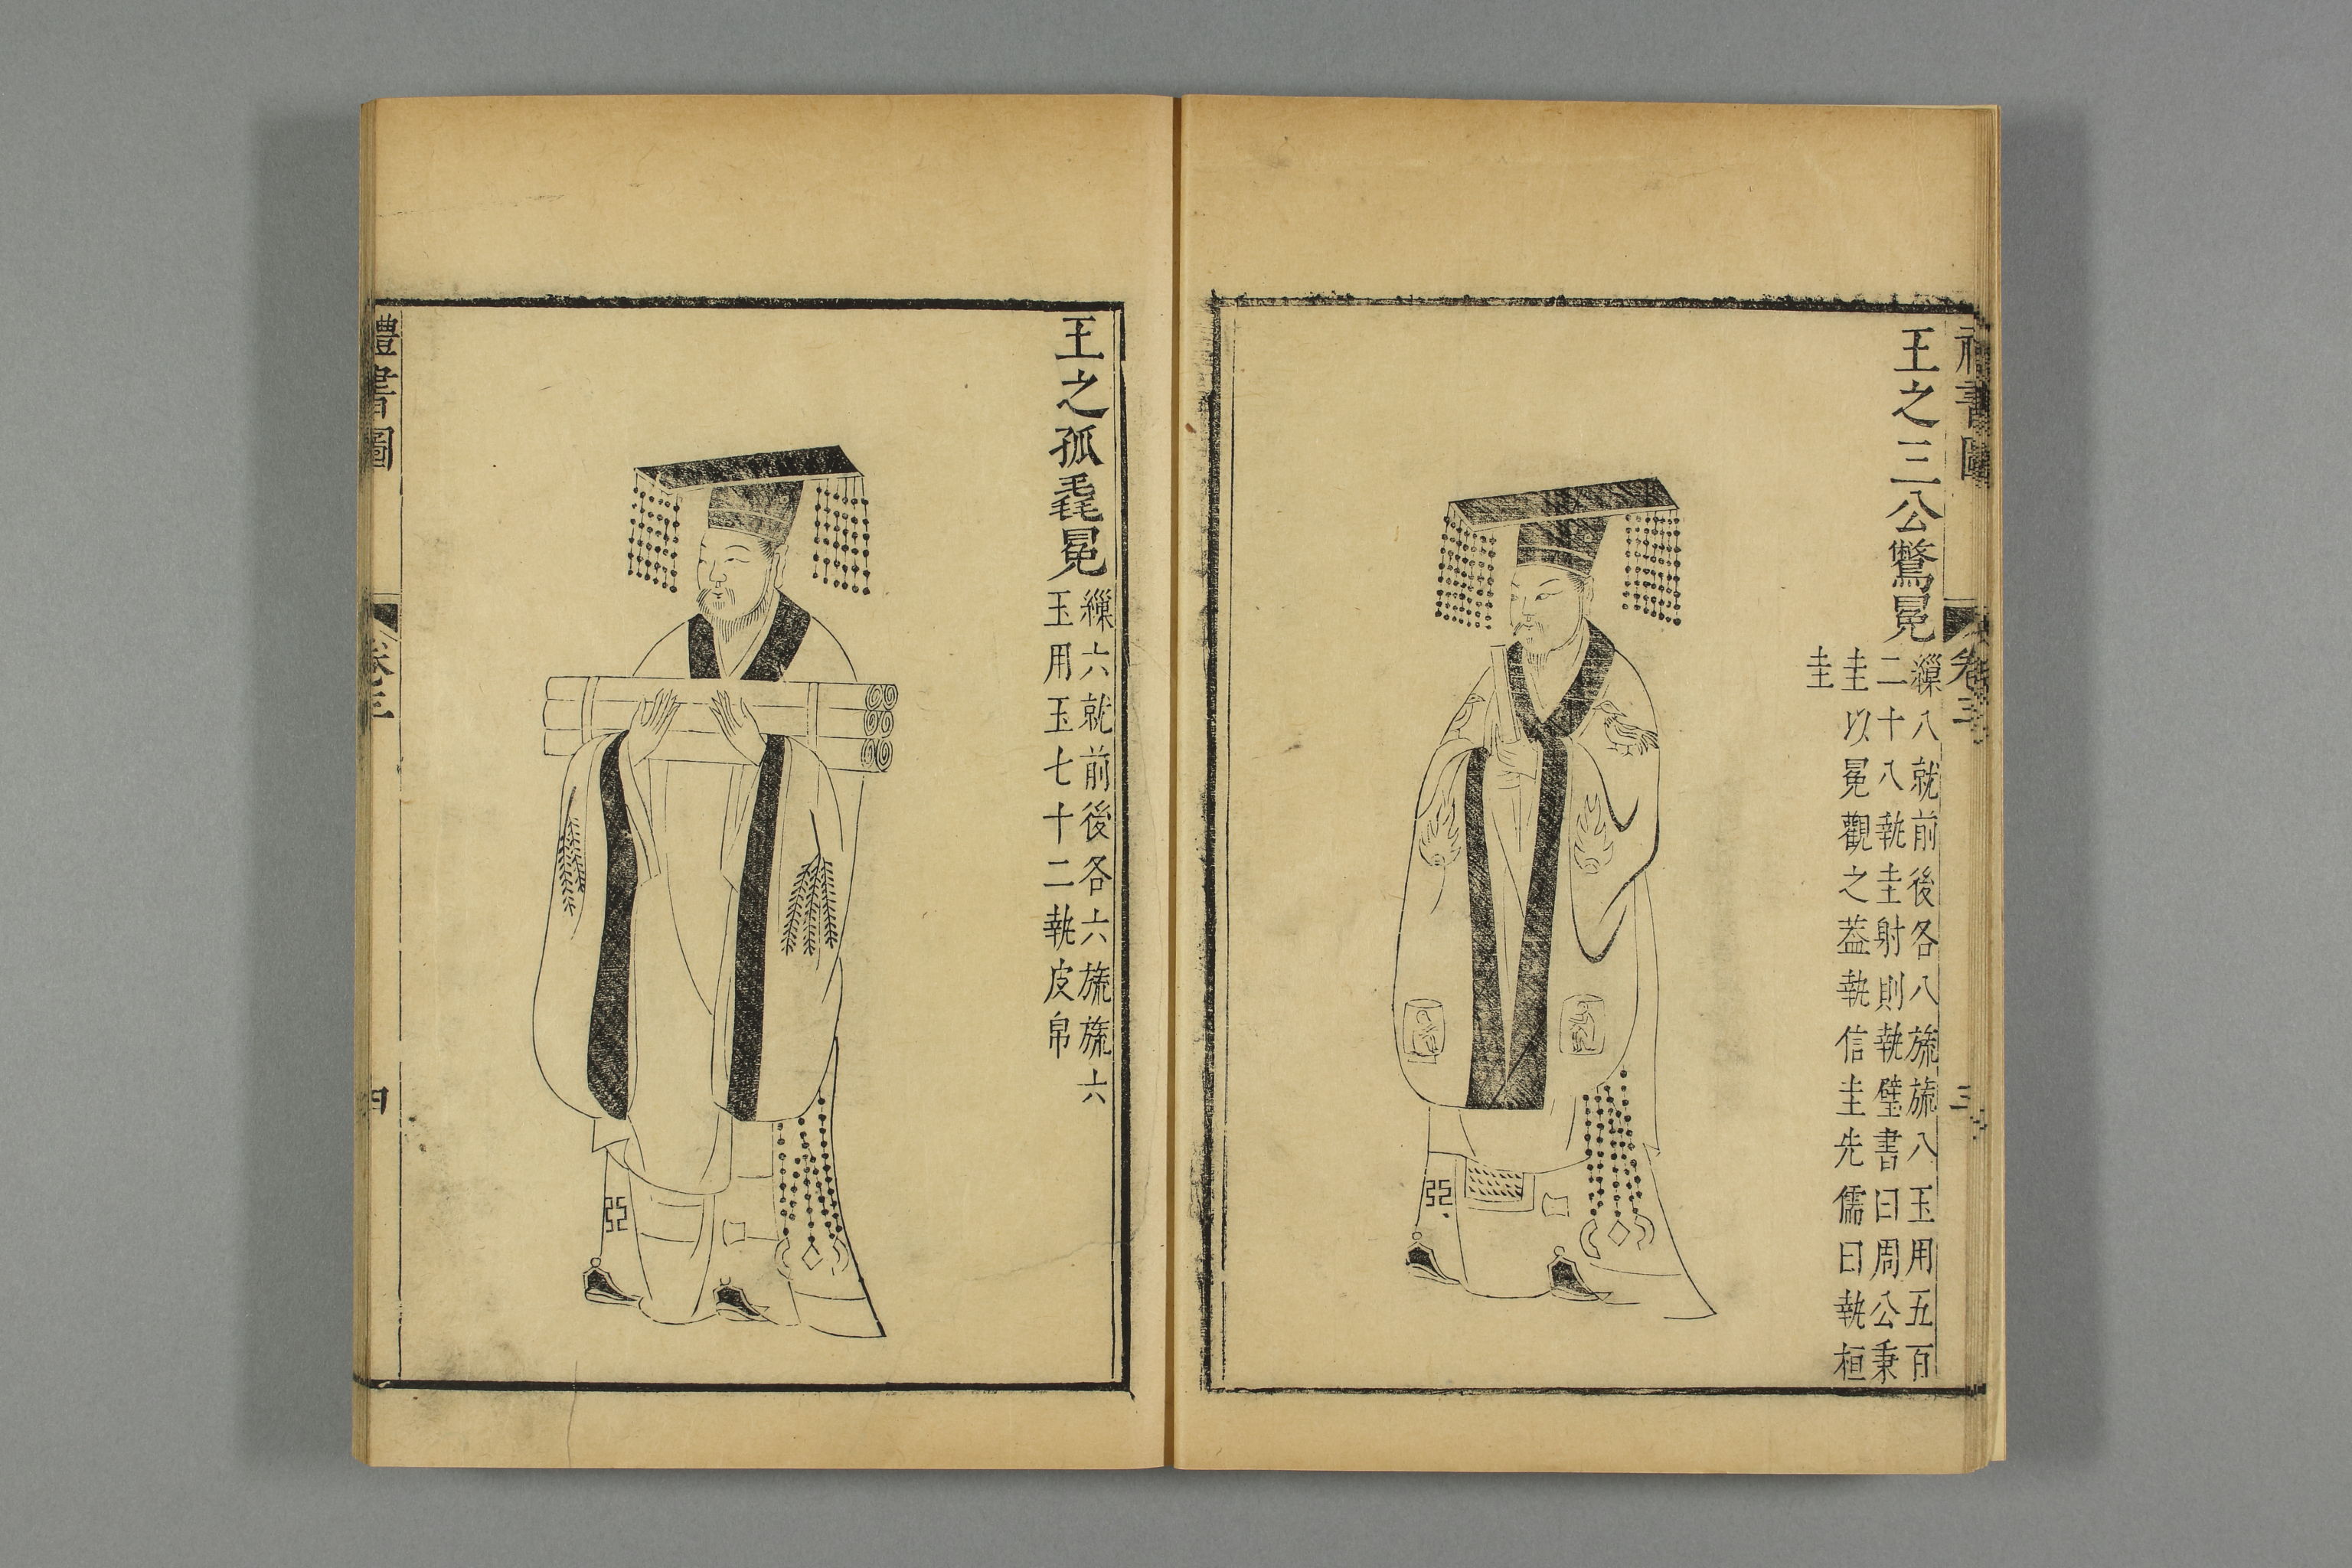 禮書圖
卷三
三
王之三公鷩冕
繅八就前後各八旒旒八玉用五百
二十八執圭射則執璧書曰周公秉
圭以冕觀之葢執信圭先儒曰執桓
圭
王之孤毳冕
繅六就前後各六旒旒六
玉用玉七十二執皮帛
禮書圖
卷三
四